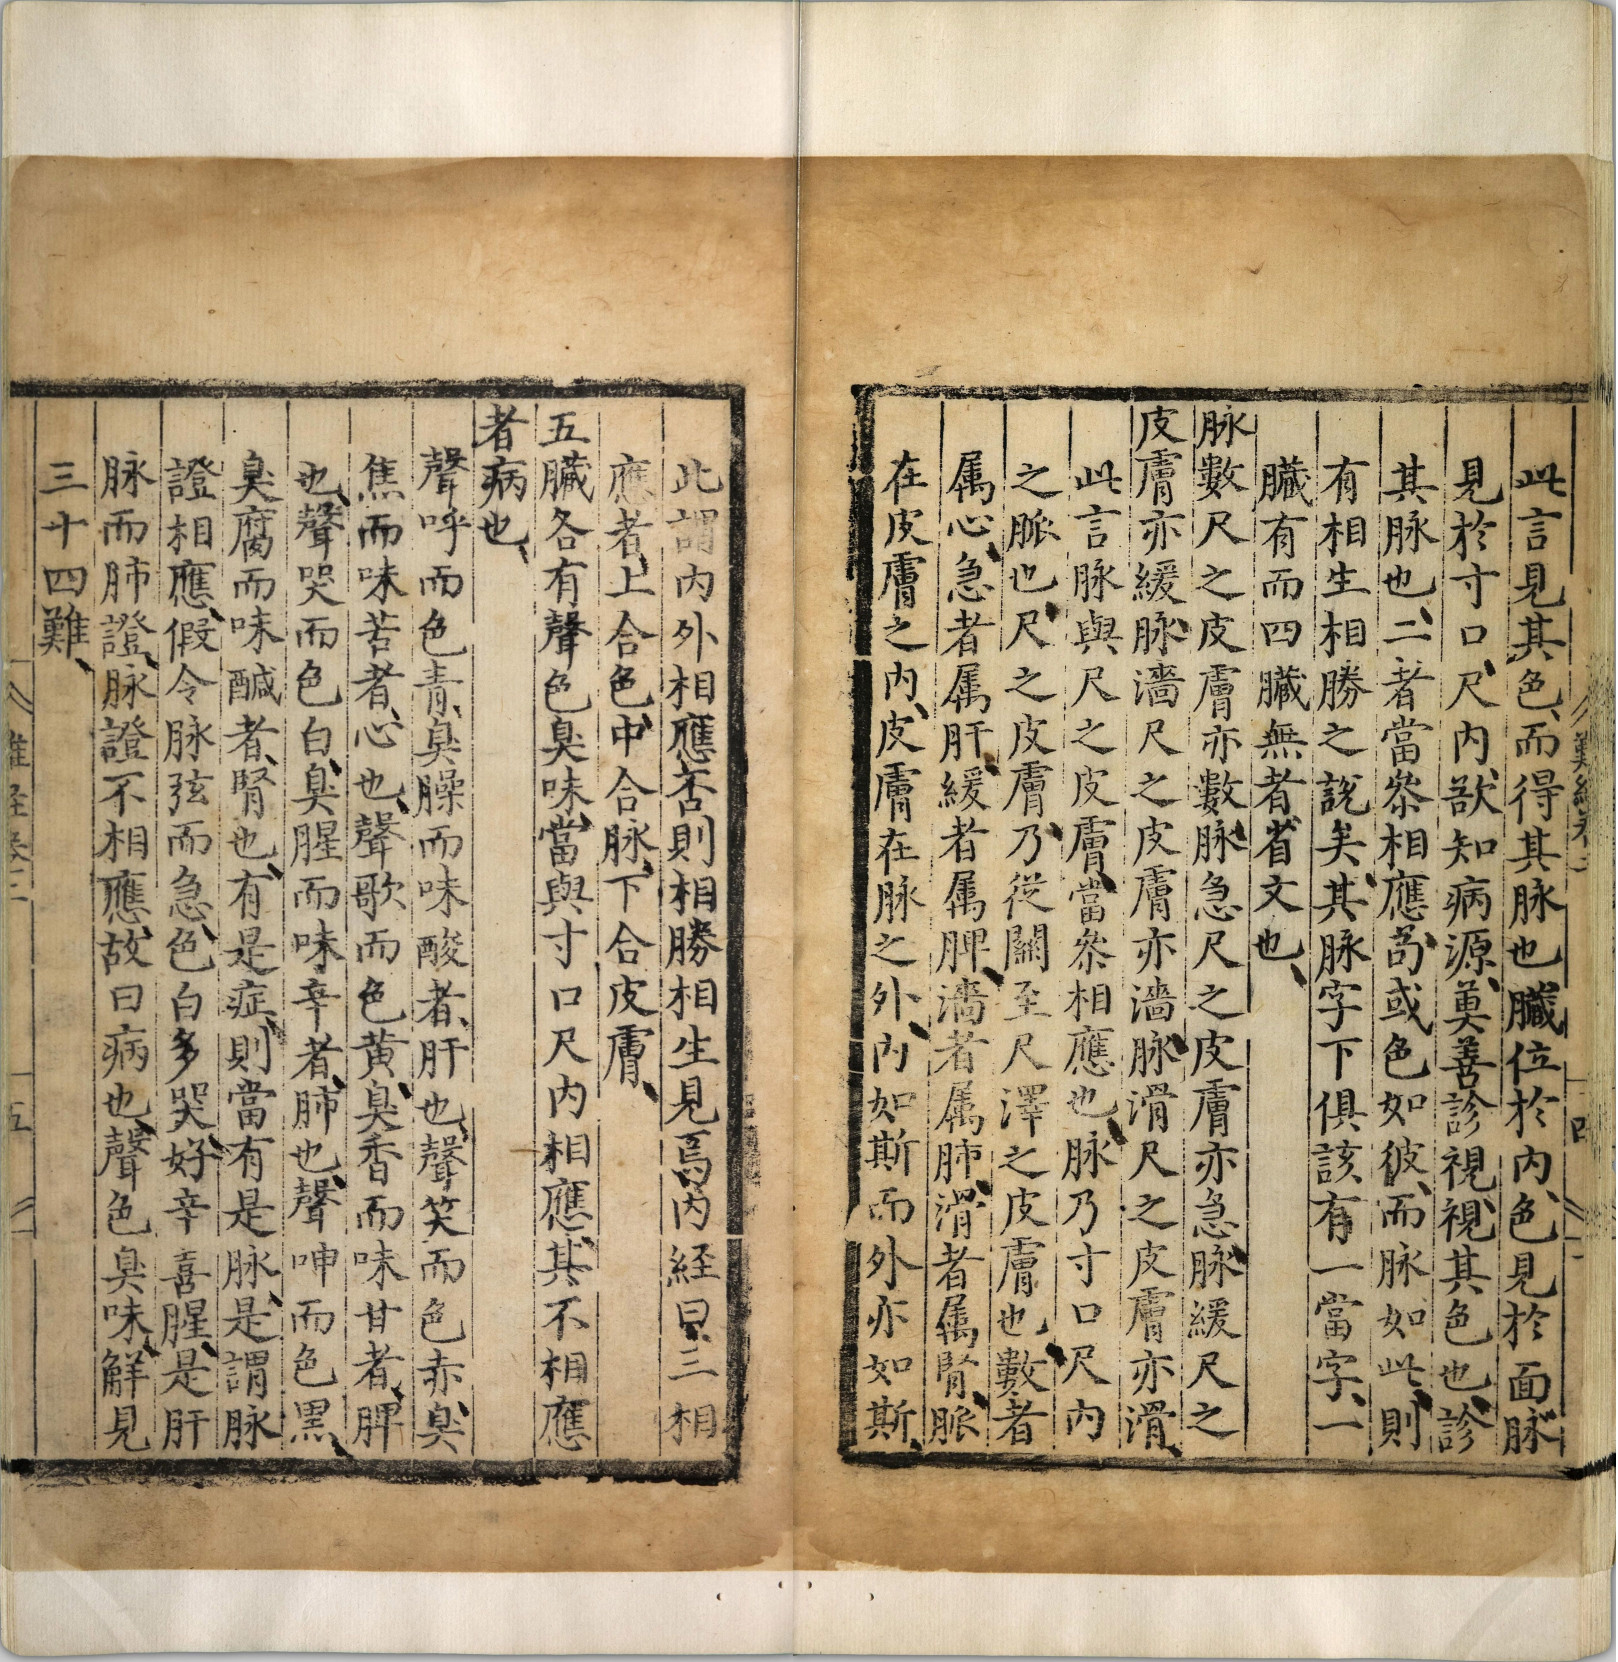 此言見其色、而得其脉也臓位於内、色見於面脉
見於寸口、尺内欲知病源、莫善診視、視其色也、診
其脉也、二者當叅相應、苟或色如彼、而脉如此、則
有相生相勝之説矣、其脉字下俱該有一當字、一
臓有而四臓無者、省文也、
脉數尺之皮膚亦數、脉急尺之皮膚亦急、脉緩尺之
皮膚亦緩、脉濇尺之皮膚亦濇、脉滑尺之皮膚亦滑、
此言脉與尺之皮膚、當叅相應也、脉乃寸口尺内
之脈也、尺之皮膚、乃從關至尺澤之皮膚也、數者
属心、急者属肝、緩者属脾、濇者属肺、滑者属腎、脈
在皮膚之内、皮膚在脉之外、内如斯而外亦如斯、
難經卷二
四
此謂内外相應、否則相勝相生見焉、内経曰、三相
應者、上合色、中合脉、下合皮膚、
五臓各有聲色臭味、當與寸口尺内相應、其不相應
者病也、
聲呼而色青、臭臊而味酸者、肝也、聲笑而色赤、臭
焦而味苦者、心也、聲歌而色黄、臭香而味甘者、脾
也、聲哭而色白、臭腥而味辛者、肺也、聲呻而色黒、
臭腐而味醎者、腎也、有是症、則當有是脉、是謂脉
證相應、假令脉弦而急、色白多哭、好辛喜腥、是肝
脉而肺證、脉證不相應、故曰病也、聲色臭味、觧見
三十四難、
難經卷二
五